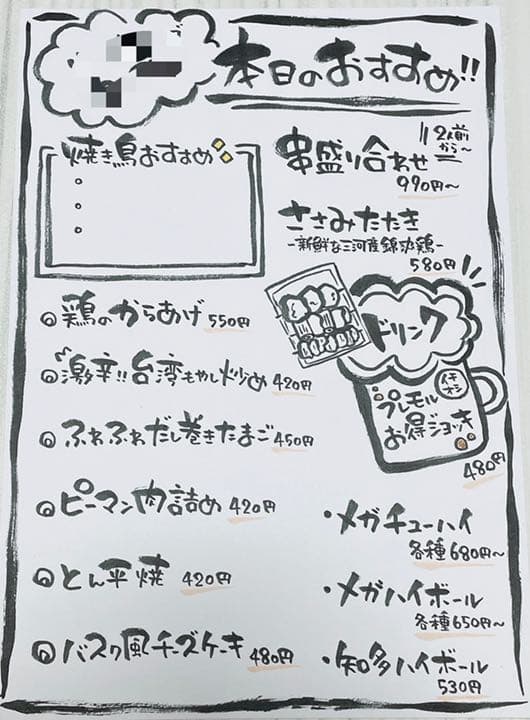 本日のおすすめ!!
焼き鳥おすすめ
串盛り合わせ
2人前から〜
990円〜
ささみたたき
-新鮮な三河産錦爽鶏-
580円
鶏のからあげ 550円
激辛!!台湾もやし炒め 420円
ふわふわだし巻きたまご 450円
ピーマン肉詰め 420円
とん平焼 420円
バスク風チーズケーキ 480円
ドリンク
イチオシ
プレモル
お得ジョッキ
480円
・メガチューハイ
各種680円〜
・メガハイボール
各種650円〜
・知多ハイボール
530円